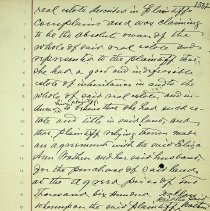 real estate described in plaintiff's
complaint and was claiming
to be the absolute owner of the
whole of said real estate and
represented to the plaintiff that
she had a good and indefeasible
estate of inheritance in and to the
whole of said real estate, and
to them that she had such es-
tate and title in said lands, and
that plaintiff relying thereon made
an agreement with the said Eliza
Ann and her said husband
for the purchase of said land
at the agreed price of
thousand six hundred dollars
whereupon the said plaintiff